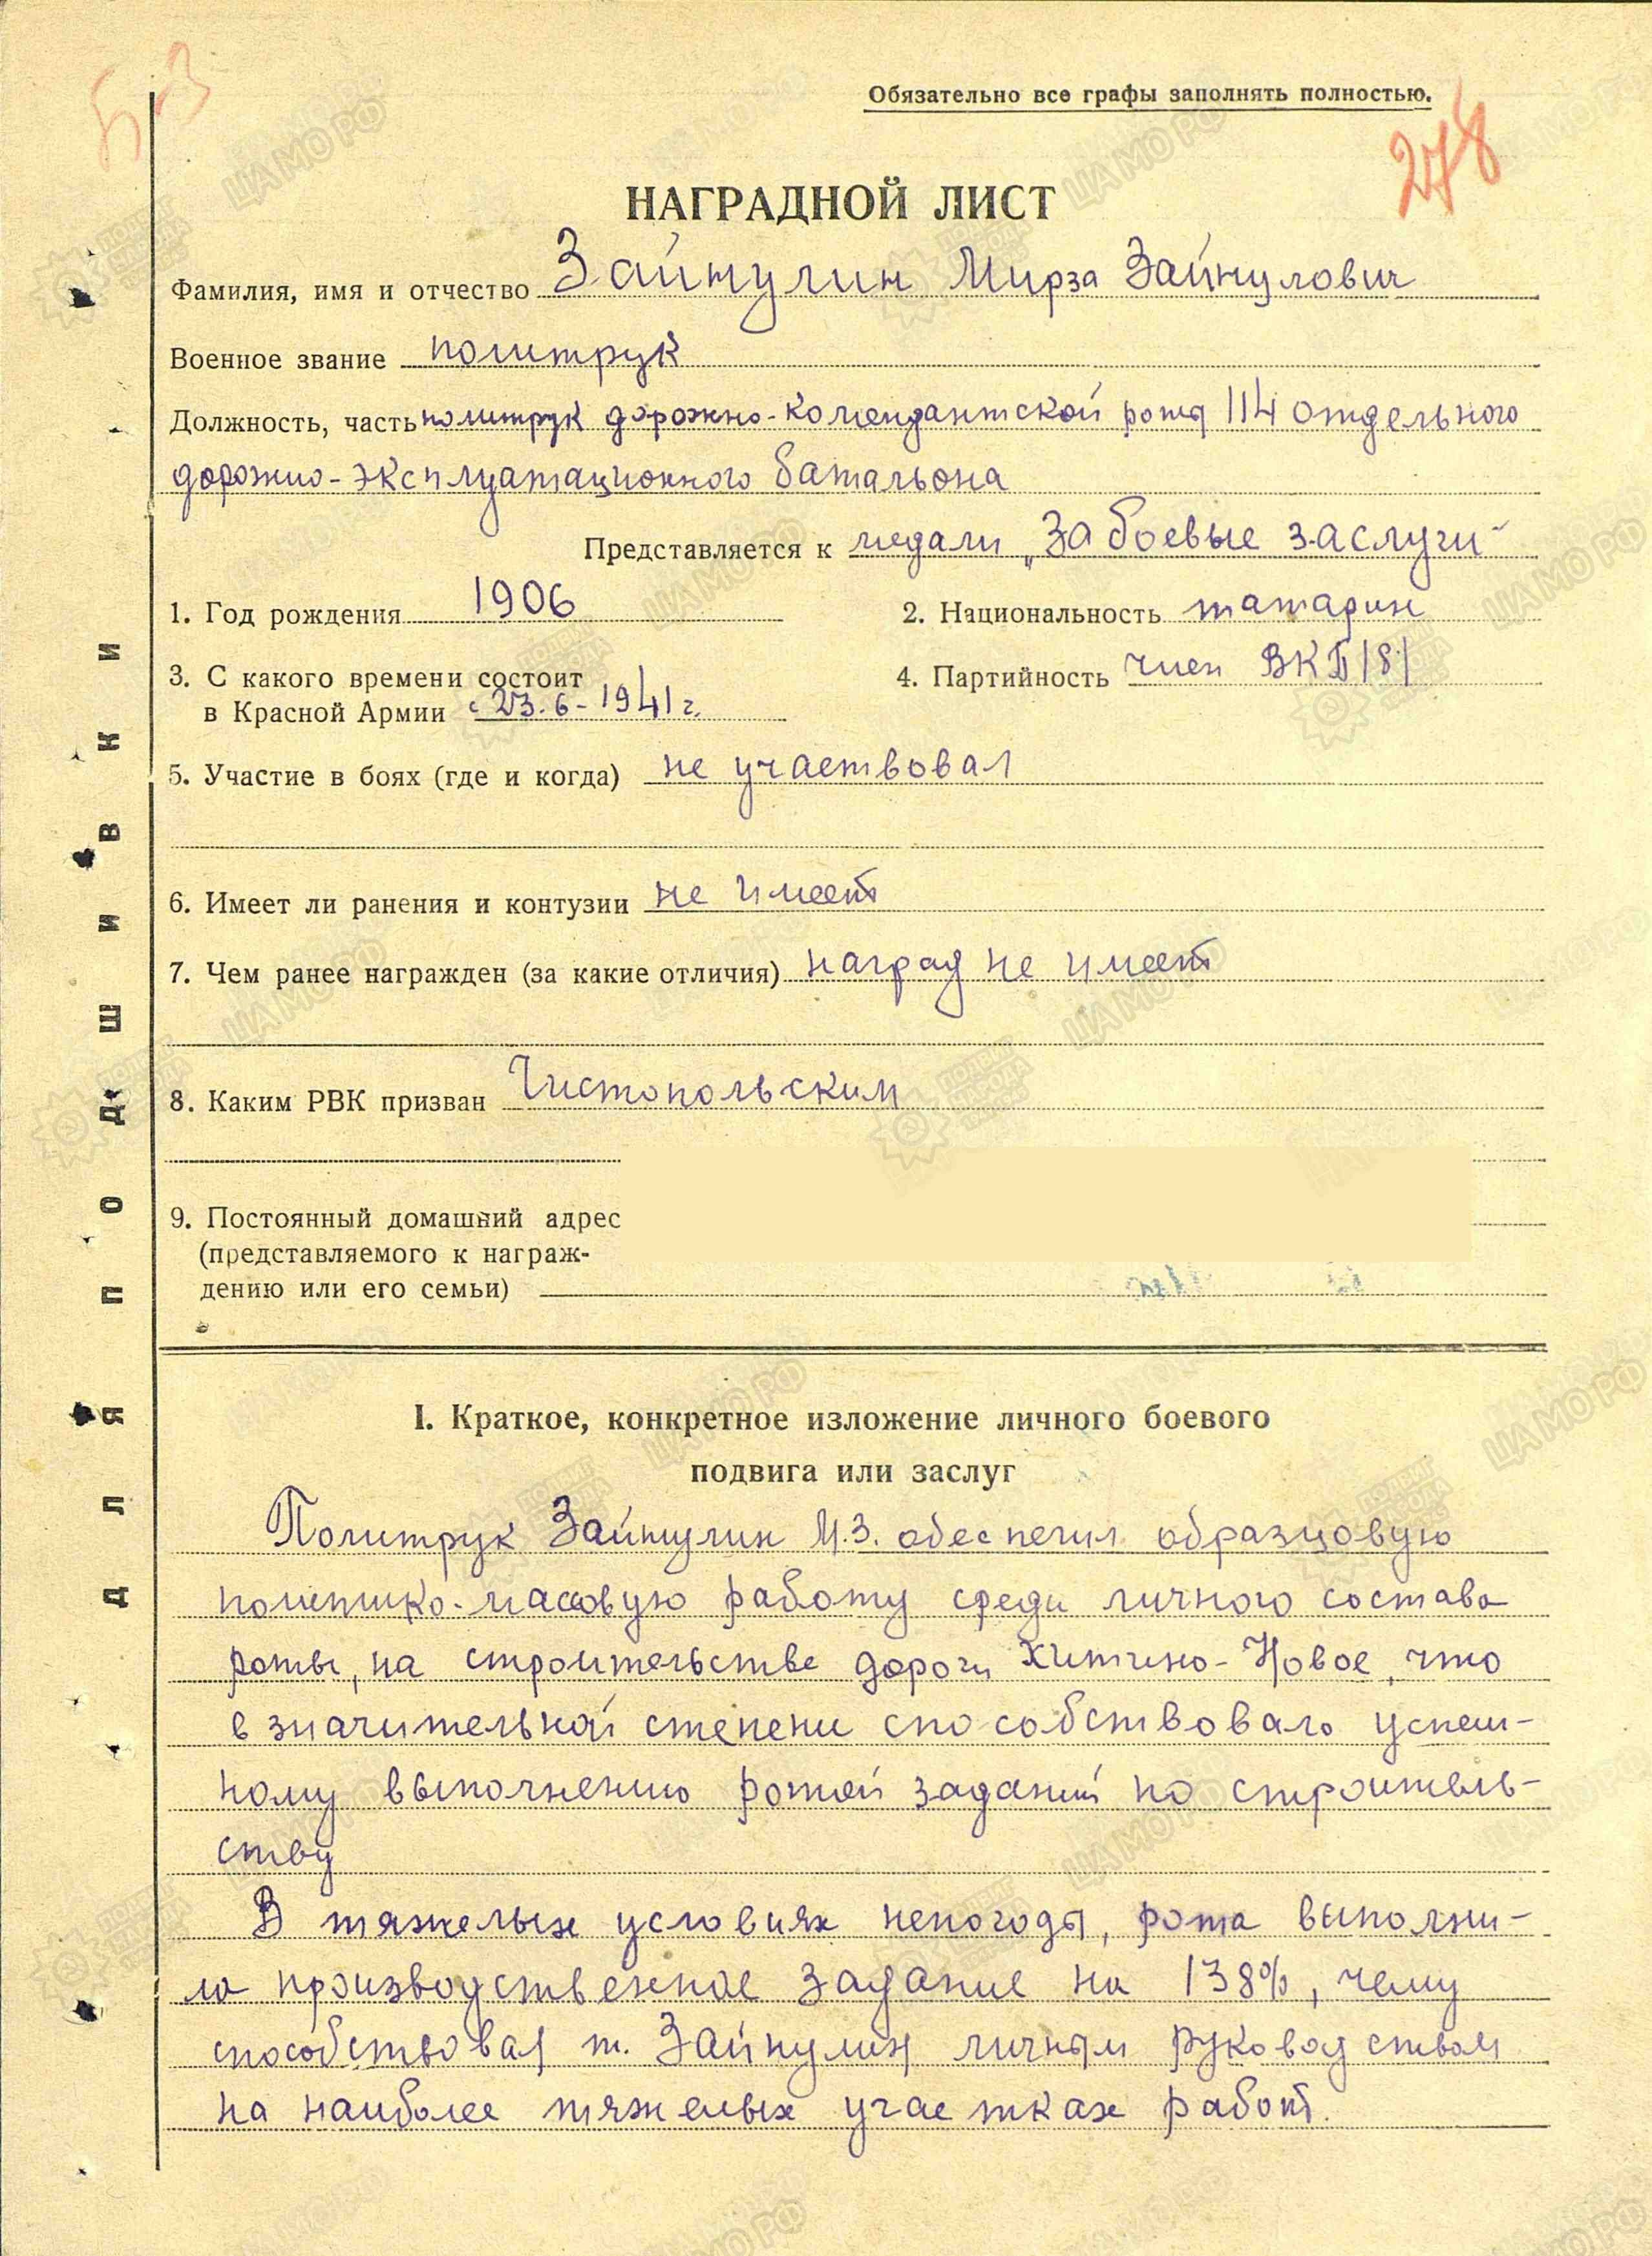 53
Обязательно все графы заполнять полностью.
278
НАГРАДНОЙ ЛИСТ
Фамилия, имя и отчество Зайнулин Мирза Зайнулович
Военное звание политрук
Должность, часть политрук дорожно-комендантской роты 114 отдельного
дорожно-эксплуатационного батальона
Представляется к медали „За боевые заслуги"
1. Год рождения 1906 2. Национальность татарин
3. С какого времени состоит
в Красной Армии с 23.6-1941 г. 4. Партийность член ВКП/б/
5. Участие в боях (где и когда) не участвовал
6. Имеет ли ранения и контузии не имеет
7. Чем ранее награжден (за какие отличия) наград не имеет
8. Каким РВК призван Чистопольским
9. Постоянный домашний адрес
(представляемого к награж-
дению или его семьи)
I. Краткое, конкретное изложение личного боевого
подвига или заслуг
Политрук Зайнулин М.З. обеспечил образцовую
политико-массовую работу среди личного состава
роты, на строительстве дороги Хитино-Новое, что
в значительной степени способствовало успеш-
ному выполнению ротой заданий по строитель-
ству
В тяжелых условиях непогоды, рота выполни-
ла производственное задание на 138%, чему
способствовал т. Зайнулин личным руководством
на наиболее тяжелых участках работ.
для подшивки
ЦАМО РФ
ПОДВИГ НАРОДА